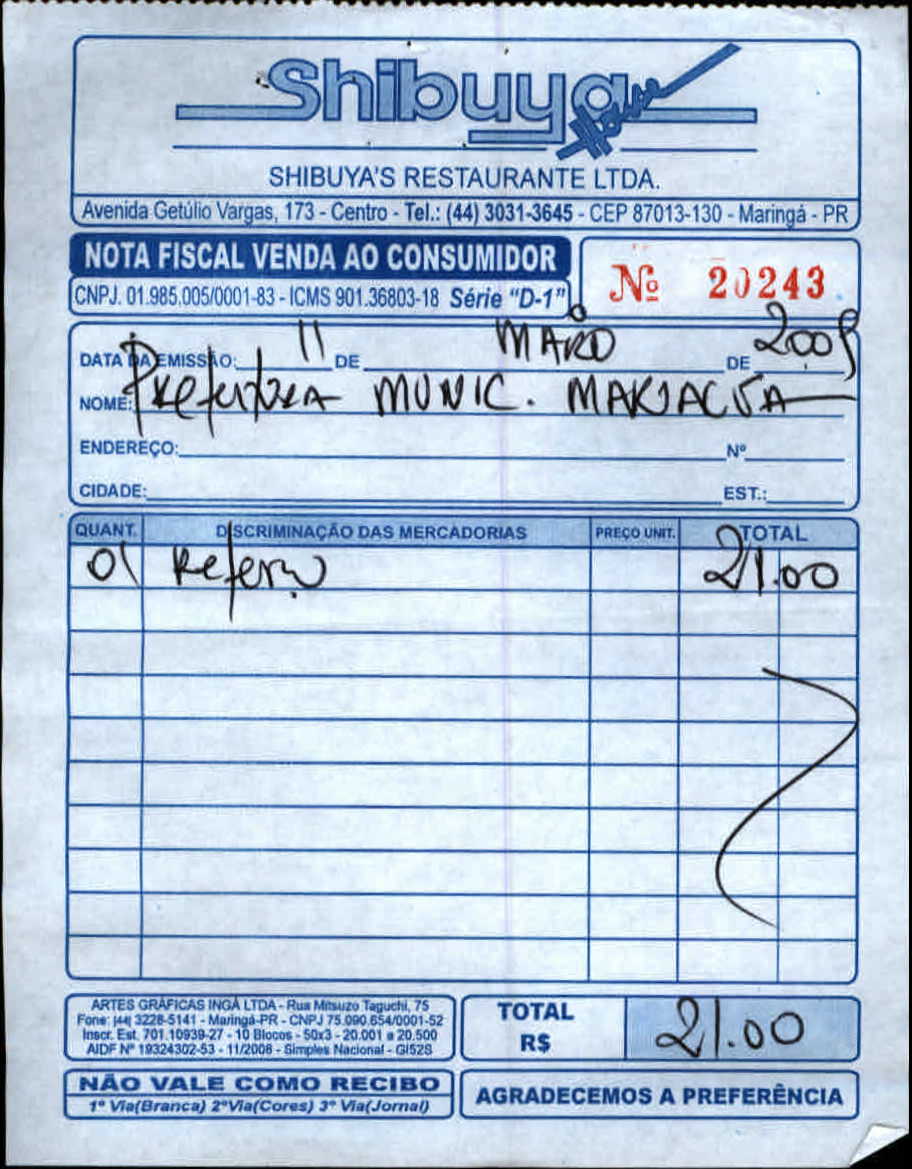 Shibuya House
SHIBUYA'S RESTAURANTE LTDA.
Avenida Getúlio Vargas, 173 - Centro - Tel.: (44) 3031-3645 - CEP 87013-130 - Maringá - PR
NOTA FISCAL VENDA AO CONSUMIDOR
CNPJ. 01.985.005/0001-83 - ICMS 901.36803-18 Série "D-1"
Nº 20243
DATA DA EMISSÃO: 11 DE MAIO DE 2009
NOME: Prefeitura MUNIC. MARIALVA
ENDEREÇO: Nº
CIDADE: EST.:
QUANT. DISCRIMINAÇÃO DAS MERCADORIAS PREÇO UNIT. TOTAL
01 21.00
ARTES GRÁFICAS INGÁ LTDA - Rua Mitsuzo Taguchi, 75
Fone: (44) 3228-5141 - Maringá-PR - CNPJ 75.090.654/0001-52
Inscr. Est. 701.10939-27 - 10 Blocos - 50x3 - 20.001 a 20.500
AIDF Nº 19324302-53 - 11/2008 - Simples Nacional - GI52S
TOTAL
R$ 21.00
NÃO VALE COMO RECIBO
1ª Via(Branca) 2ªVia(Cores) 3ª Via(Jornal)
AGRADECEMOS A PREFERÊNCIA